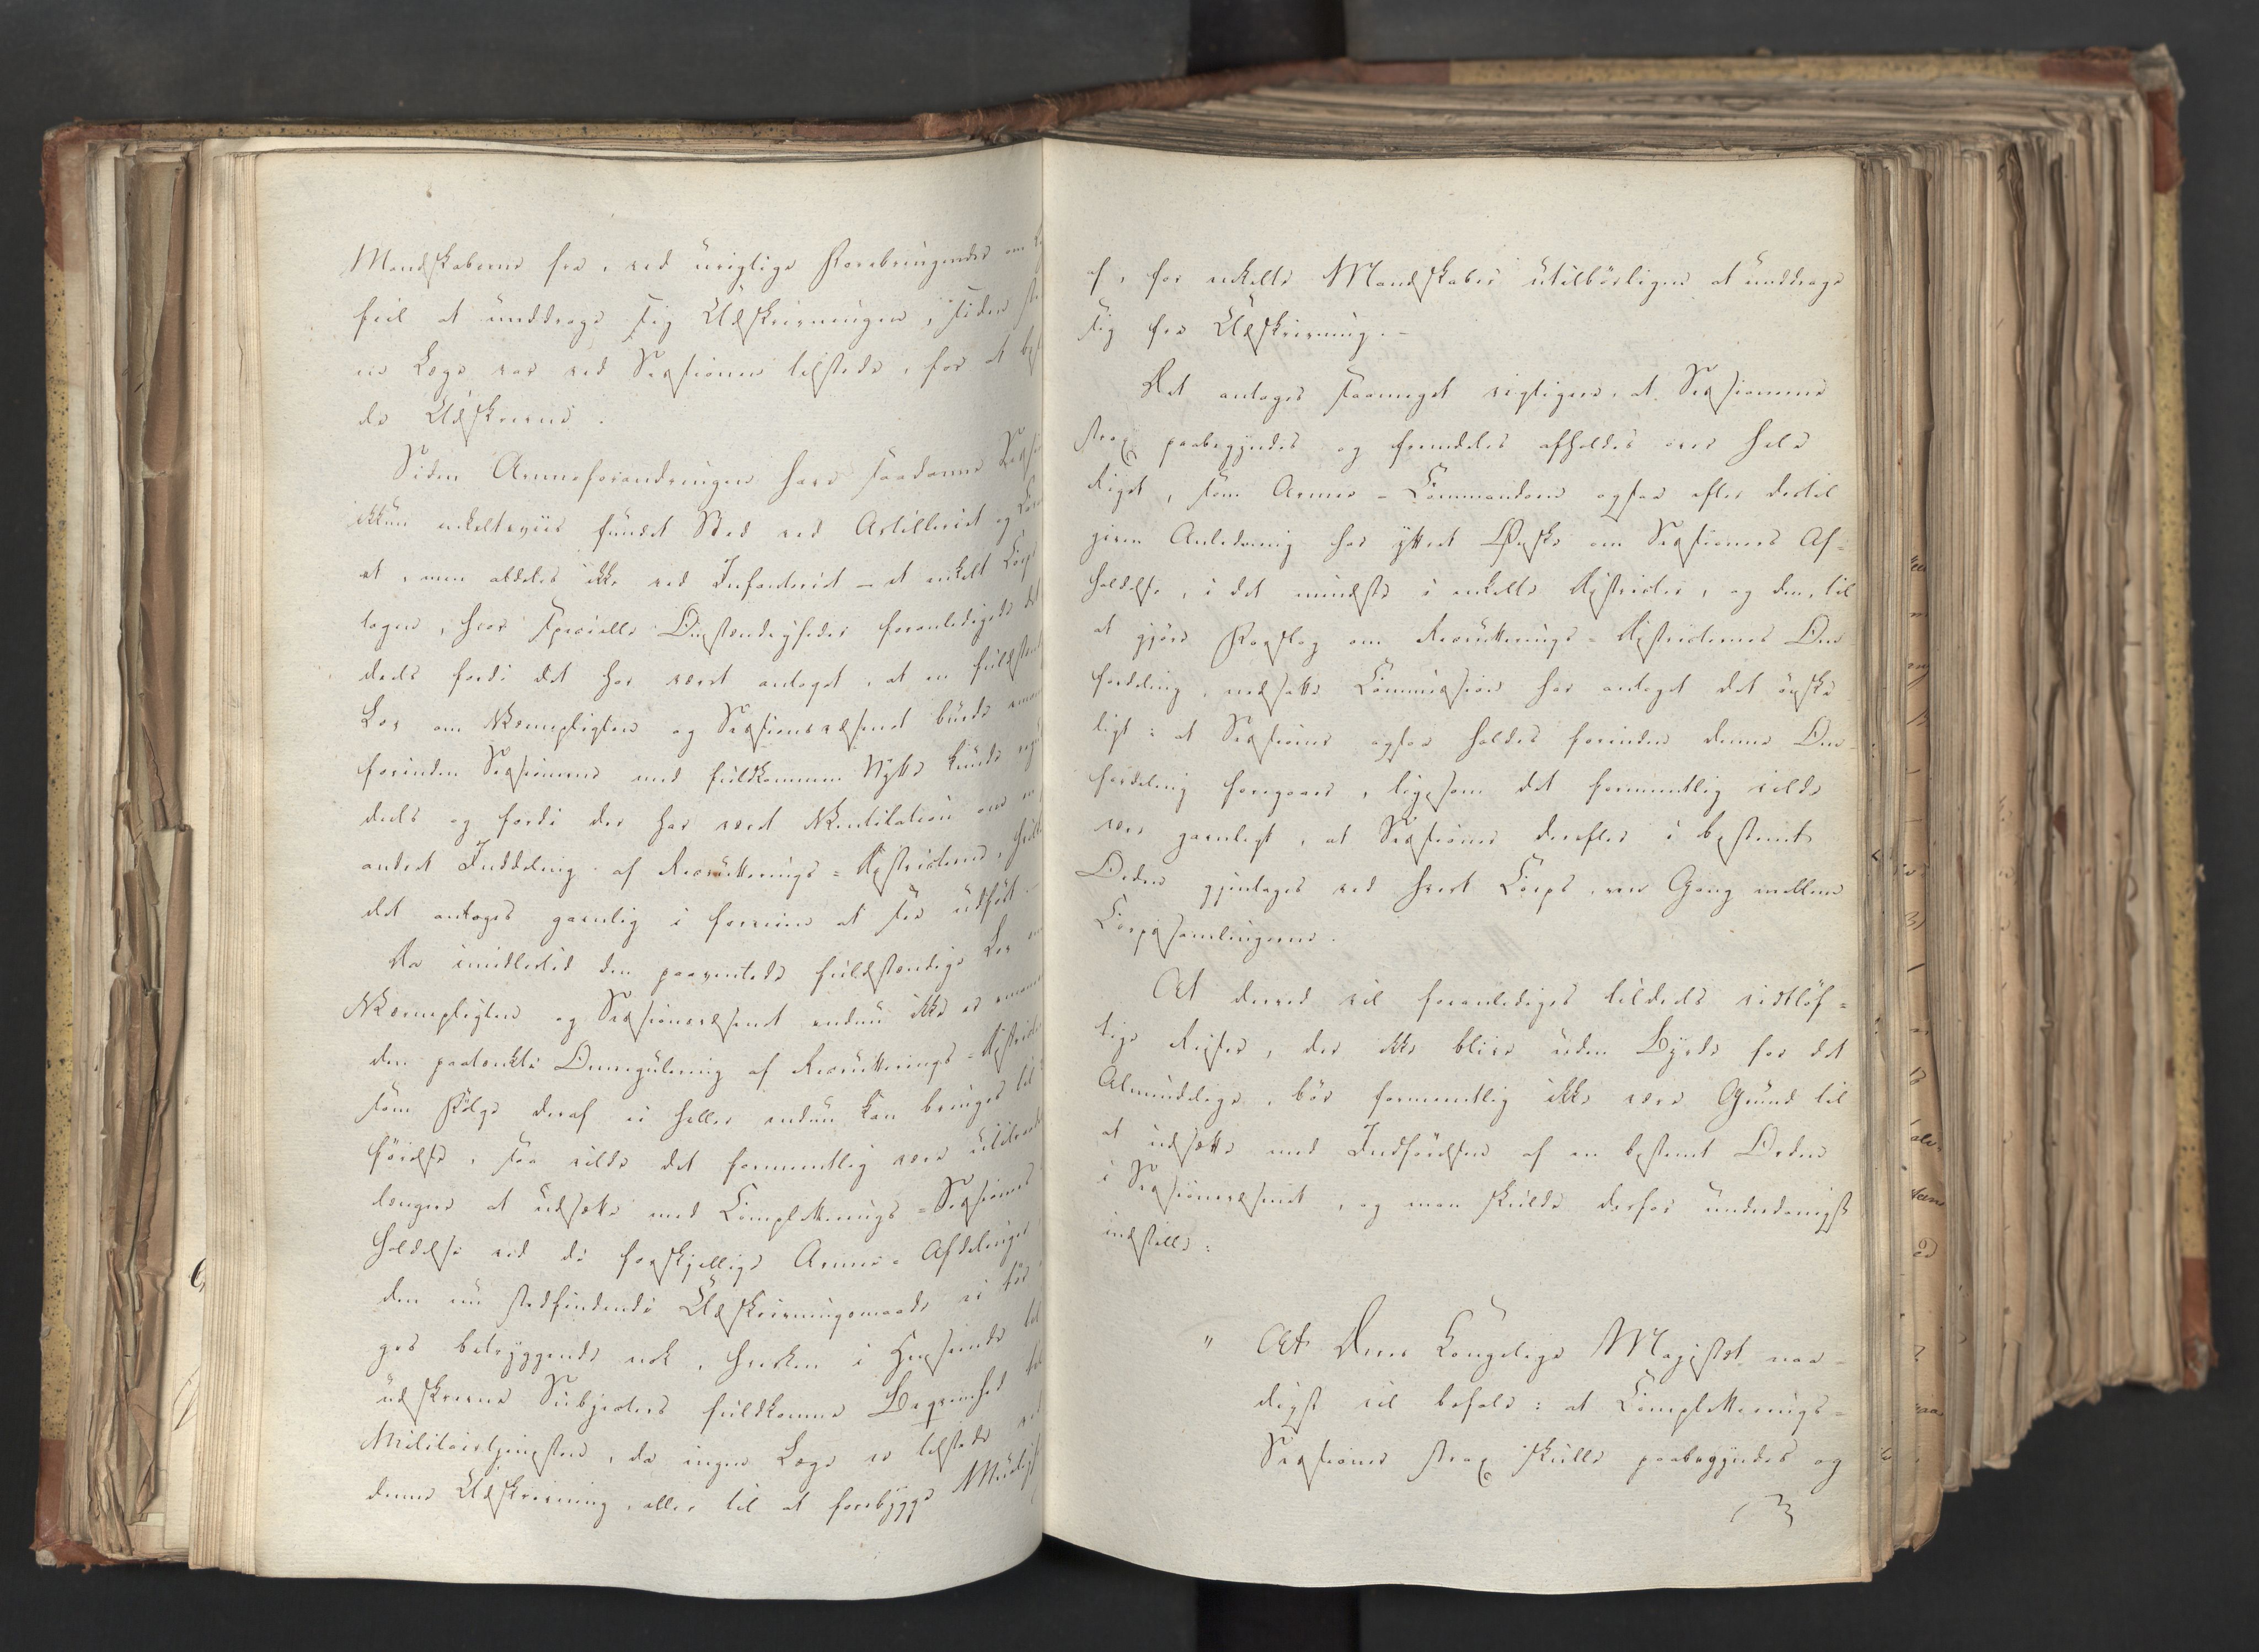 Mandskaberne fra, ved urigtige Forebringender om
feil at unddrage sig Udskrivningen, siden
en Læge var ved Sessionen tilstede, for at
de Udskrevne.
Siden Armeeforandringen have saadanne
ikkun enkeltviis fundet Sted ved Artilleriet og
et, men aldeles ikke ved Infanteriet – et enkelt Corps
tagen, hvor specielle Omstændigheder foranledigede det
deels fordi det har været antaget, at en fuldstænd
Lov om Værnepligten og Sessionsvæsenet burde
forinden Sessionerne med fuldkommen Nytte kunde
deels og fordi der har været Ventilation om en
anden Inddeling af Recrutterings-Districterne, hvilke
det antages gavnlig i forveien at see udført –
Da imidlertid den paaventede fuldstændige Lov
Værnepligten og Sessionsvæsenet endnu ikke er
den paatænkte Omregulering af Recrutterings-District
som Følge deraf ei heller endnu kan bringes til
førelse, saa vilde det formeentlig være
længere at udsætte med Completterings-Sessioners
holdelse ved de forskjellige Armee-Afdelinger
den nu stedfindende Udskrivningsmaade ei
ges betryggende nok, hverken i Henseende til
udskrevne Subjecters fuldkomne Beqvemhed til
Militairtjenesten, da ingen Læge er tilstede ved
denne Udskrivning, eller til at forebygge Mulig
af, for enkelte Mandskaber utilbørligen at unddrage
sig fra Udskrivning. –
Det antages saameget rigtigere, at Sessionerne
strax paabegyndes og fremdeles afholdes over hele
Riget, som Armee-Commandoen ogsaa efter dertil
given Anledning har yttret Ønske om Sessioners Af-
holdelse, i det mindste i enkelte Districter, og den, til
at gjøre Forslag om Recrutterings-Districternes Om-
fordeling, nedsatte Commission har antaget det ønske-
ligt: at Sessioner ogsaa holdes forinden denne Om-
fordeling foregaaer, ligesom det formeentlig vilde
være gavnligt, at Sessioner derefter i bestemt
Orden gjentages ved hvert Corps, een Gang mellem
Corpssamlingerne.
At derved vil foranlediges tildeels vidtløf-
tige Reiser, der ikke blive uden Byrde for det
Almindelige, bør formeentlig ikke være Grund til
at udsætte med Indførelsen af en bestemt Orden
i Sessionsvæsenet, og man skulde derfor underdanigst
indstille:
" At Deres Kongelige Majestæt naa-
digst vil befale: at Completterings-
Sessioner strax skulle paabegyndes og